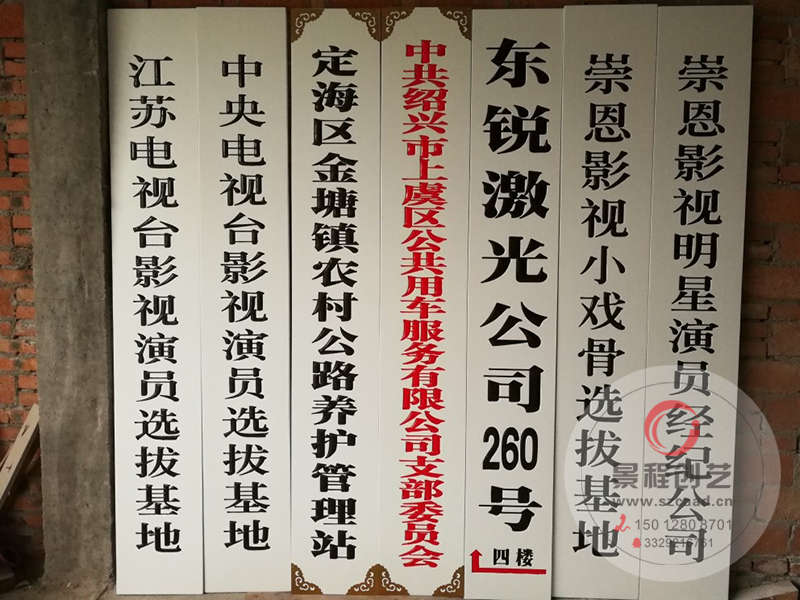 江苏电视台影视演员选拔基地
中央电视台影视演员选拔基地
定海区金塘镇农村公路养护管理站
中共绍兴市上虞区公共用车服务有限公司支部委员会
东锐激光公司260号
四楼
崇恩影视小戏骨选拔基地
崇恩影视明星演员经纪公司
景程创艺
www.szcaad.cn
150 1280 8701